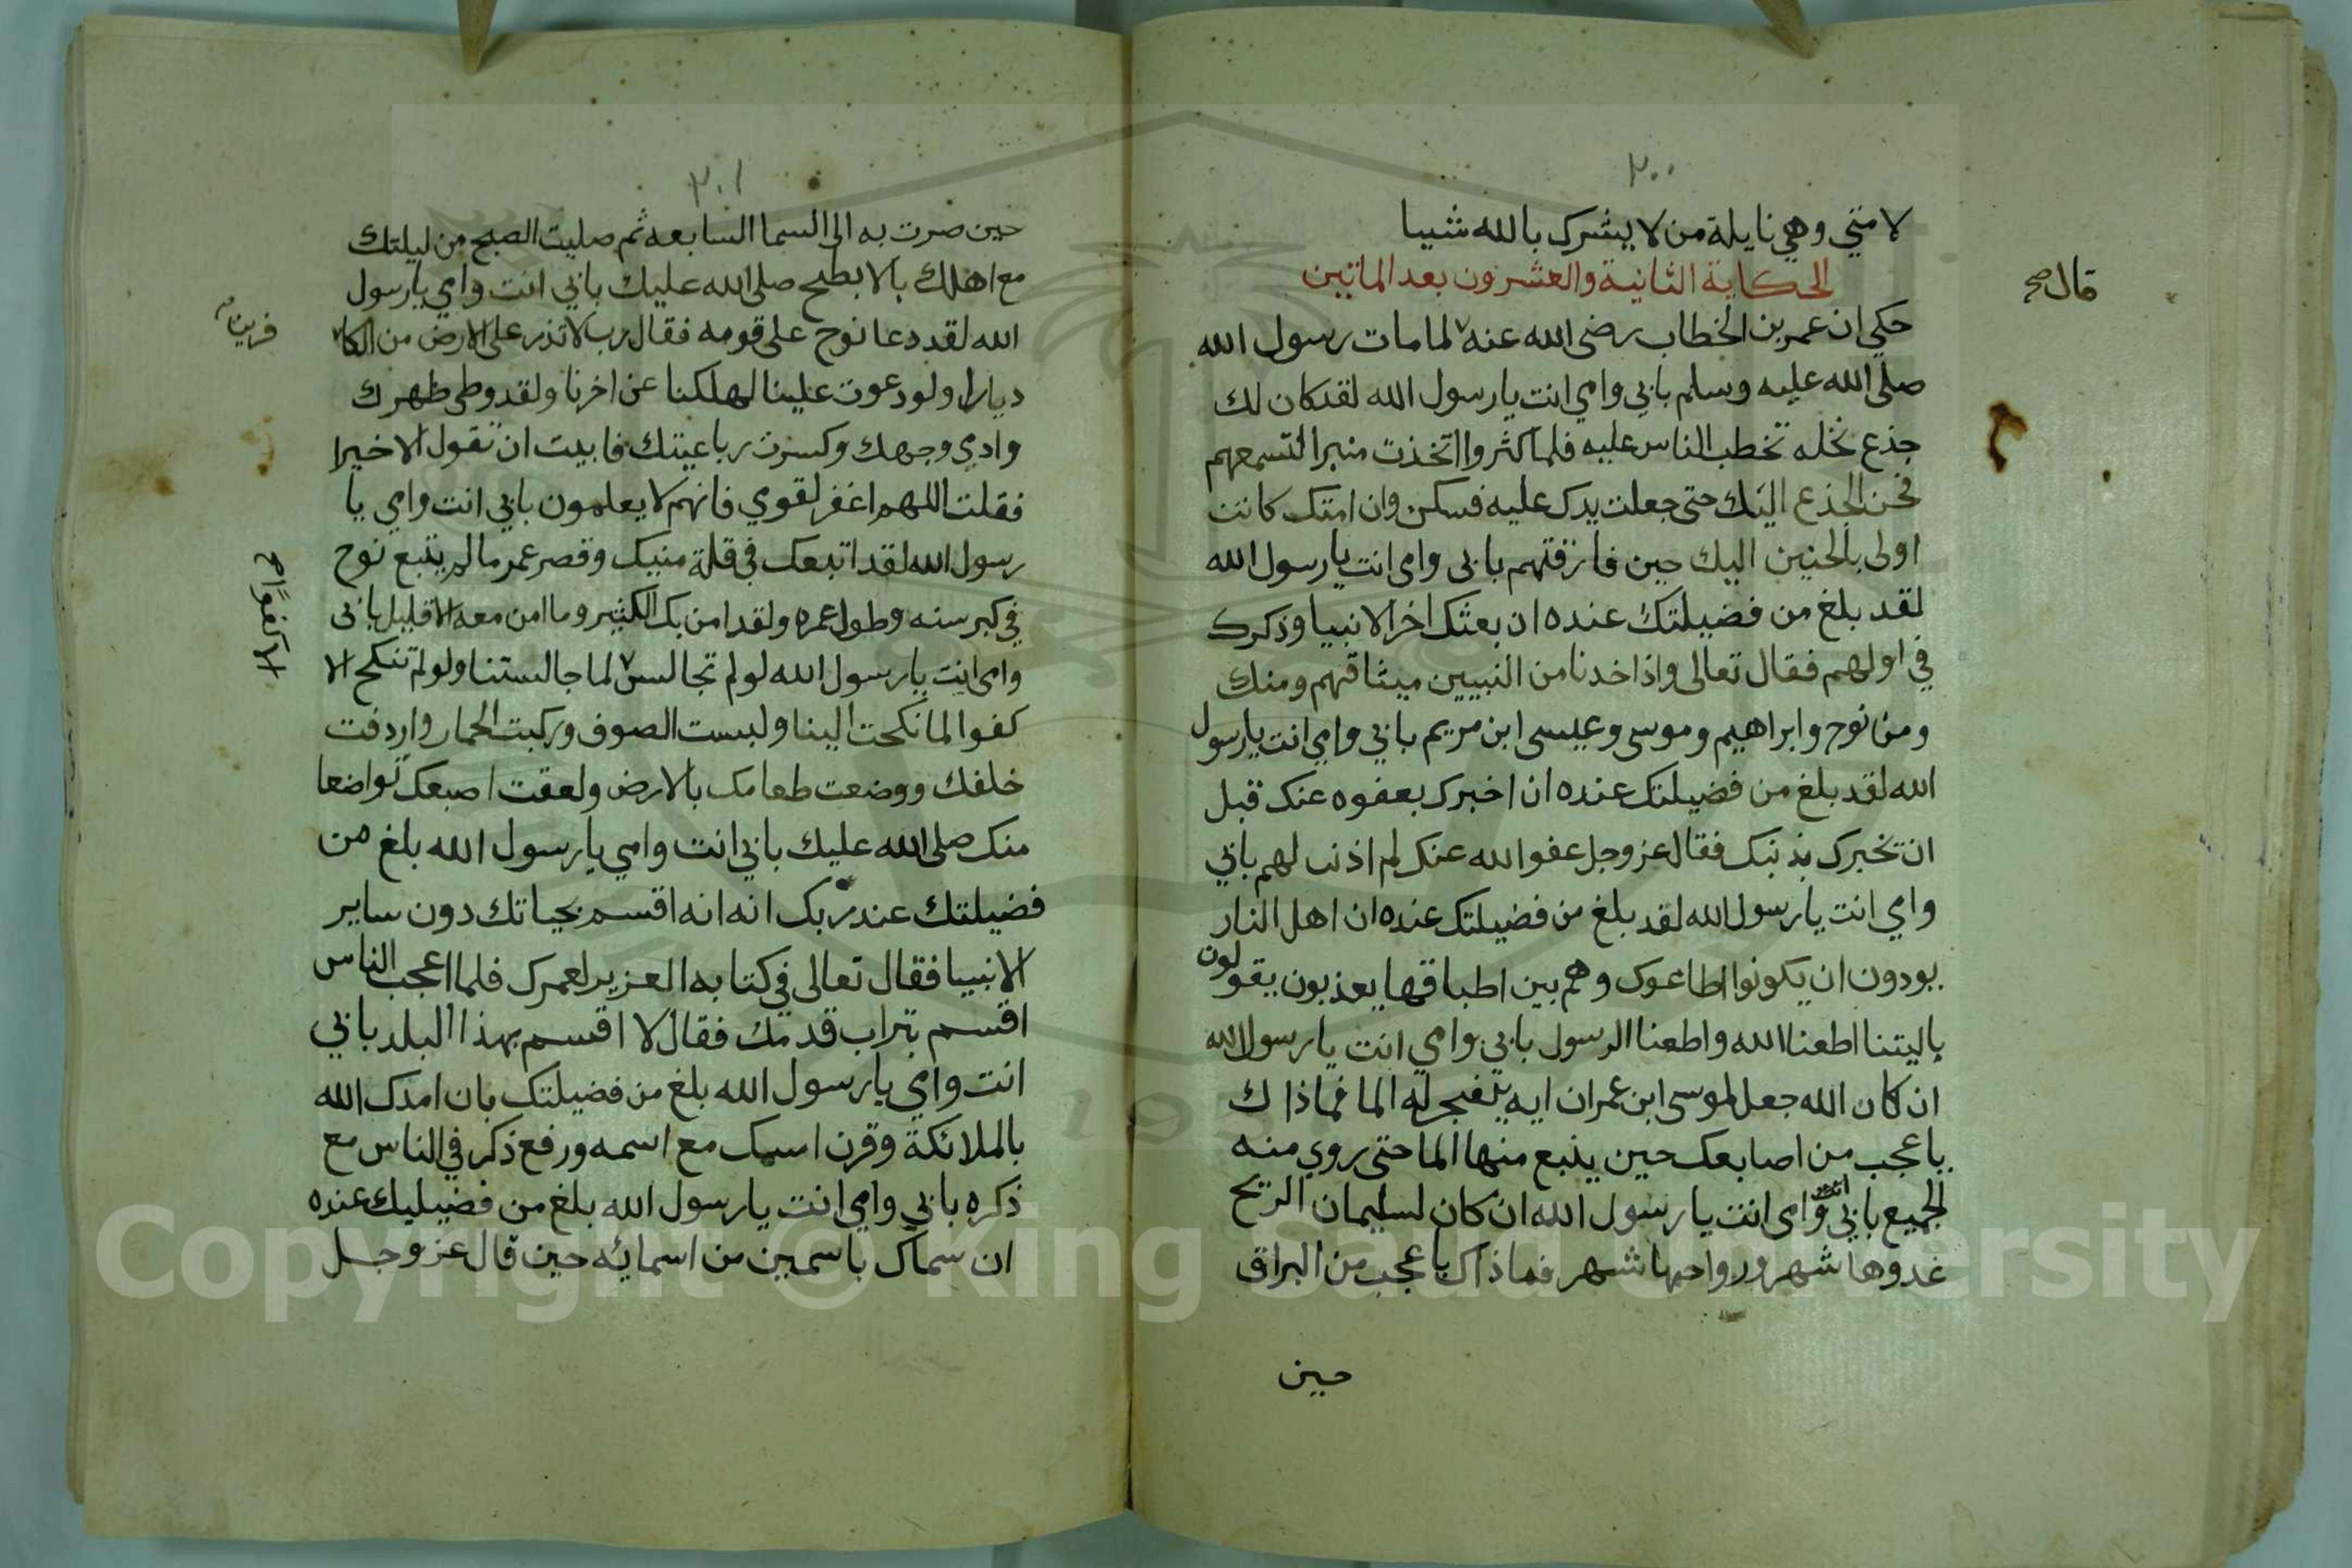 ٢٠٠
لامتي وهي نايلة من لا يشرك بالله شيا
الحكاية الثانية والعشرون بعد الماتين
حكي ان عمر بن الخطاب رضى الله عنه لما مات رسول الله
قال صح
صلى الله عليه وسلم بابي وامي انت يا رسول الله لقد كان لك
جذع نخله تخطب الناس عليه فلما كثروا اتخذت منبرا لتسمعهم
فحن الجذع اليك حتى جعلت يدك عليه فسكن وان امتك كانت
اولى بالحنين اليك حين فارقتهم بابى وامى انت يا رسول الله
لقد بلغ من فضيلتك عنده ان بعثك اخر الانبيا وذكرك
في اولهم فقال تعالى واذا خدنا من النبيين ميثاقهم ومنك
ومن نوح وابراهيم وموسى وعيسى ابن مريم بابي وامي انت يا رسول
الله لقد بلغ من فضيلتك عنده ان اخبرك بعفوه عنك قبل
ان تخبرك بذنبك فقال عز وجل عفوا لله عنك لم اذنت لهم بابي
وامي انت يا رسول الله لقد بلغ من فضيلتك عنده ان اهل النار
يودون ان يكونوا اطاعوك وهم بين اطباقها يعذبون يقولون
ياليتنا اطعنا الله واطعنا الرسول بابي وامي انت يا رسول الله
ان كان الله جعل لموسى ابن عمران ايه يتفجر له الما فماذاك
باعجب من اصابعك حين ينبع منها الما حتى روي منه
الجميع بابي انت وامى انت يا رسول الله ان كان لسليمان الريح
غدوها شهر ورواحها شهر فماذاك باعجب من البراق
حين
٢٠١
حين صرت به الى السما السابعه ثم صليت الصبح من ليلتك
مع اهلك بالابطح صلى الله عليك بابي انت وامي يا رسول
الله لقد دعا نوح على قومه فقال رب لا تذر على الارض من الكا
فرين
ديارا ولو دعوت علينا لهلكنا عن اخرنا ولقد وطى ظهرك
وادي وجهك وكسرت رباعيتك فابيت ان تقول الا خيرا
فقلت اللهم اغفر لقوي فانهم لا يعلمون بابي انت وامي يا
رسول الله لقد اتبعك في قلة منيك وقصر عمر ما لم يتبع نوح
في كبر سنه وطول عمره ولقد امن بك الكثير وما امن معه الا قليل بابى
وامى انت يا رسول الله لو لم تجالس لما جالستنا ولو لم تنكح الا
الا كفوا صح
كفوا لما نكحت الينا ولبست الصوف وركبت الحمار واردفت
خلفك ووضعت طعامك بالارض ولعقت اصبعك تواضعا
منك صلى الله عليك بابي انت وامي يا رسول الله بلغ من
فضيلتك عند ربك انه انه اقسم بحياتك دون ساير
الانبيا فقال تعالى في كتابه العزيز لعمرك فلما اعجب الناس
اقسم بتراب قدمك فقال لا اقسم بهذا البلد بابي
انت وامي يا رسول الله بلغ من فضيلتك بان امدك الله
بالملائكة وقرن اسمك مع اسمه ورفع ذكر في الناس مع
ذكره بابي وامي انت يا رسول الله بلغ من فضيليك عنده
ان سماك باسمين من اسمائه حين قال عز وجل
Copyright © King Saud University